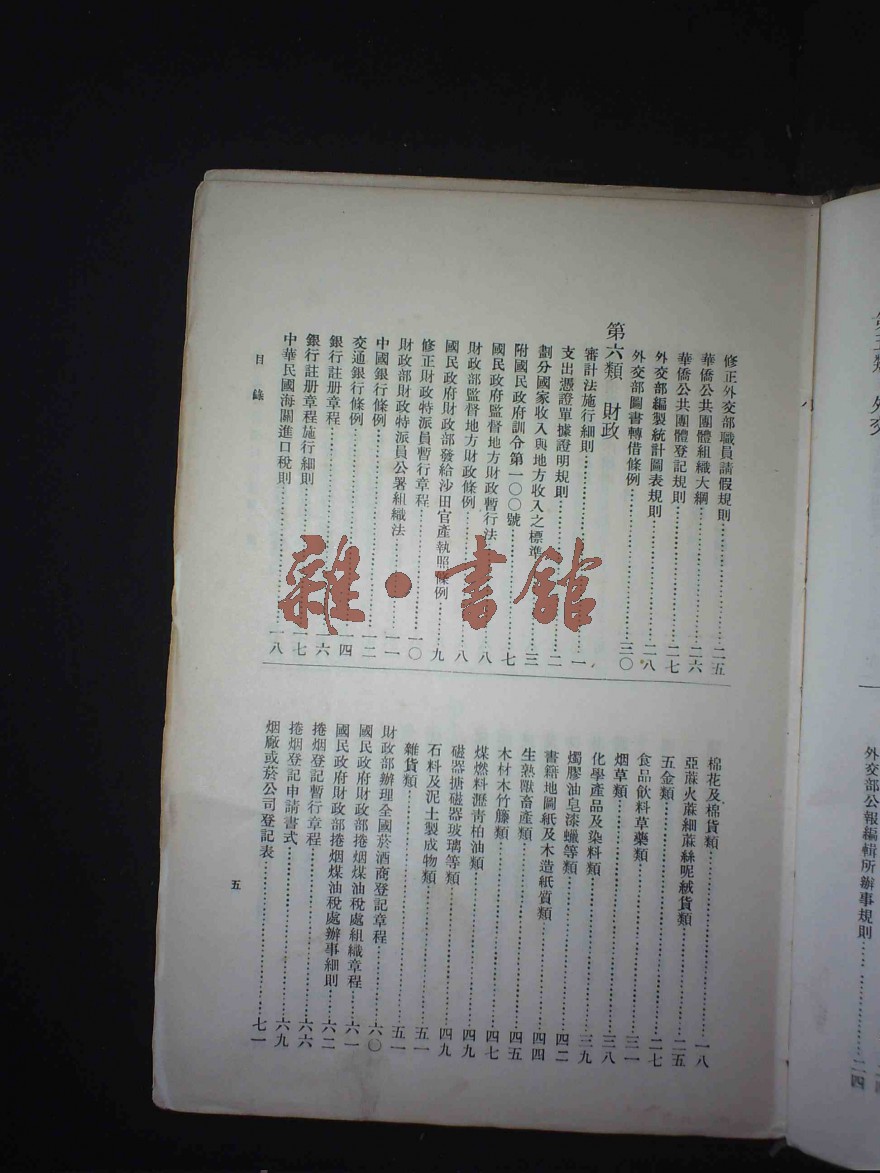 修正外交部職員請假規則……二五
華僑公共團體組織大綱……二六
華僑公共團體登記規則……二七
外交部編製統計圖表規則……二八
外交部圖書轉借條例……三〇
第六類 財政
審計法施行細則……一
支出憑證單據證明規則……二
劃分國家收入與地方收入之標準……三
附國民政府訓令第一〇〇號……七
國民政府監督地方財政暫行法……八
財政部監督地方財政條例……八
國民政府財政部發給沙田官產執照條例……九
修正財政特派員暫行章程……一〇
財政部財政特派員公署組織法……一一
中國銀行條例……一二
交通銀行條例……一四
銀行註册章程……一六
銀行註册章程施行細則……一七
中華民國海關進口稅則……一八
棉花及棉貨類……一八
亞蔴火蔴細蔴絲呢絨貨類……二五
五金類……二七
食品飲料草藥類……三一
烟草類……三八
化學產品及染料類……三九
燭膠油皂漆蠟等類……四二
書籍地圖紙及木造紙質類……四四
生熟獸畜產類……四五
木材木竹籐類……四七
煤燃料瀝青柏油類……四九
磁器搪磁器玻璃等類……四九
石料及泥土製成物類……五一
雜貨類……五一
財政部辦理全國菸酒商登記章程……六〇
國民政府財政部捲烟煤油稅處組織章程……六一
國民政府財政部捲烟煤油稅處辦事細則……六二
捲烟登記暫行章程……六六
捲烟登記申請書式……六九
烟廠或菸公司登記表……七一
目錄
五
雜·書館
外交部公報編輯所辦事規則……二四